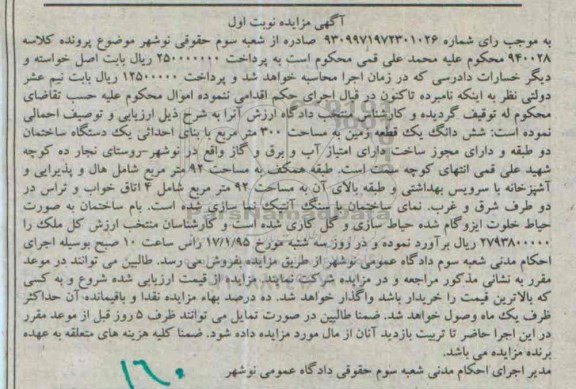 آگهی مزایده نوبت اول
به موجب رای شماره ۹۳۰۹۹۷۱۹۷۲۳۰۱۰۲۶ صادره از شعبه سوم حقوقی نوشهر موضوع پرونده کلاسه
۹۴۰۰۲۸ محکوم علیه محمد علی قمی محکوم است به پرداخت ۲۵۰۰۰۰۰۰۰۰ ریال بابت اصل خواسته و
دیگر خسارات دادرسی که در زمان اجرا محاسبه خواهد شد و پرداخت ۱۲۵۰۰۰۰۰ ریال بابت نیم عشر
دولتی نظر به اینکه نامبرده تاکنون در قبال اجرای حکم اقدامی ننموده اموال محکوم علیه حسب تقاضای
محکوم له توقیف گردیده و کارشناس منتخب دادگاه ارزش آنرا به شرح ذیل ارزیابی و توصیف اجمالی
نموده است: شش دانگ یک قطعه زمین به مساحت ۳۰۰ متر مربع با بنای احداثی یک دستگاه ساختمان
دو طبقه و دارای مجوز ساخت دارای امتیاز آب و برق و گاز واقع در نوشهر-روستای نجار ده کوچه
شهید علی قمی انتهای کوچه سمت است. طبقه همکف به مساحت ۹۲ متر مربع شامل هال و پذیرایی و
آشپزخانه با سرویس بهداشتی و طبقه بالای آن به مساحت ۹۲ متر مربع شامل ۴ اتاق خواب و تراس در
دو طرف شرق و غرب. نمای ساختمان با سنگ آنتیک نما سازی شده است. بام ساختمان به صورت
حیاط خلوت ایزوگام شده حیاط سازی و گل کاری شده است و کارشناسان منتخب ارزش کل ملک را
۲۷۹۳۸۰۰۰۰۰ ریال برآورد نموده و در روز سه شنبه مورخ ۱۷/۱/۹۵ راس ساعت ۱۰ صبح بوسیله اجرای
احکام مدنی شعبه سوم دادگاه عمومی نوشهر از طریق مزایده بفروش می رسد. طالبین می توانند در موعد
مقرر به نشانی مذکور مراجعه و در مزایده شرکت نمایند. مزایده از قیمت ارزیابی شده شروع و به کسی
که بالاترین قیمت را خریدار باشد واگذار خواهد شد. ده درصد بهاء مزایده نقدا و باقیمانده آن حداکثر
ظرف یک ماه وصول خواهد شد. ضمنا طالبین در صورت تمایل می توانند ظرف ۵ روز قبل از موعد مقرر
در این اجرا حاضر تا تربیت بازدید آنان از مال مورد مزایده داده شود. ضمنا کلیه هزینه های متعلقه به عهده
برنده مزایده می باشد.
مدیر اجرای احکام مدنی شعبه سوم حقوقی دادگاه عمومی نوشهر
۱۶۰